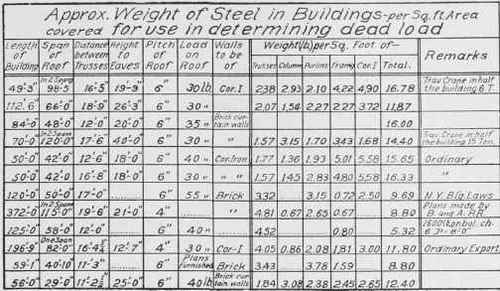 Approx. Weight of Steel in Buildings - per Sq. ft. Area
covered for use in determining dead load
Length of Building Span of Roof Distance between Trusses Height to Eaves Pitch of Roof Load on Roof Walls to be Weight (lb) per Sq. Foot of- Remarks
Trusses Column Purlins Framg Cor. I Total.
49'-3" In 2 Spans 98'-5" 16'-5" 19'-9" 6" 30 lb. Cor. I 2.38 2.93 2.10 4.22 4.90 16.78 Trav Crane in half the building 6 T.
112'-6" 66'-0" 18'-9" 26'-3" 6" 30 " " 2.07 1.54 2.27 2.27 3.72 11.87
84'-0" 48'-0" 12'-0" 20'-0" 6" 35 " Brick curtain walls 16.00
70'-0" In 2 Spans 120'-0" 17'-6" 40'-0" 6" 30 " " 1.57 3.15 1.70 3.43 1.68 14.40 Trav Crane in half the building 15 Ton.
50'-0" 42'-0" 12'-6" 18'-0" 6" 40 " Cor. Iron 1.77 1.36 1.93 5.01 5.58 15.65 Ordinary
50'-0" 42'-0" 16'-8" 18'-0" 6" 30 " " 1.57 1.45 2.83 4.80 5.58 16.33 "
120'-0" 50'-0" 17'-0" 6" 55 " Brick 3.32 3.15 0.72 2.50 9.69 N.Y. Blg. Laws
372'-0" In 2 Spans 115'-0" 19'-6" 21'-0" 4" " 4.81 0.67 2.65 0.67 8.80 Plans made by B. and A. RR.
125'-0" 58'-0" 12'-0" 6" 40 " 4.52 0.80 5.32
196'-9" One Span 82'-0" 16'-4¾" 12'-7" 4" 30 " Cor-I 4.05 0.86 2.08 1.81 3.00 11.80 Ordinary Export.
59'-1" 40'-10" 11'-3" 6" Plans furnished Brick 3.43 3.78 1.59 8.80
56'-0" 29'-0" 25'-0" 6" 40 lb Brick curtain walls 1.84 3.08 2.38 2.45 2.65 12.40